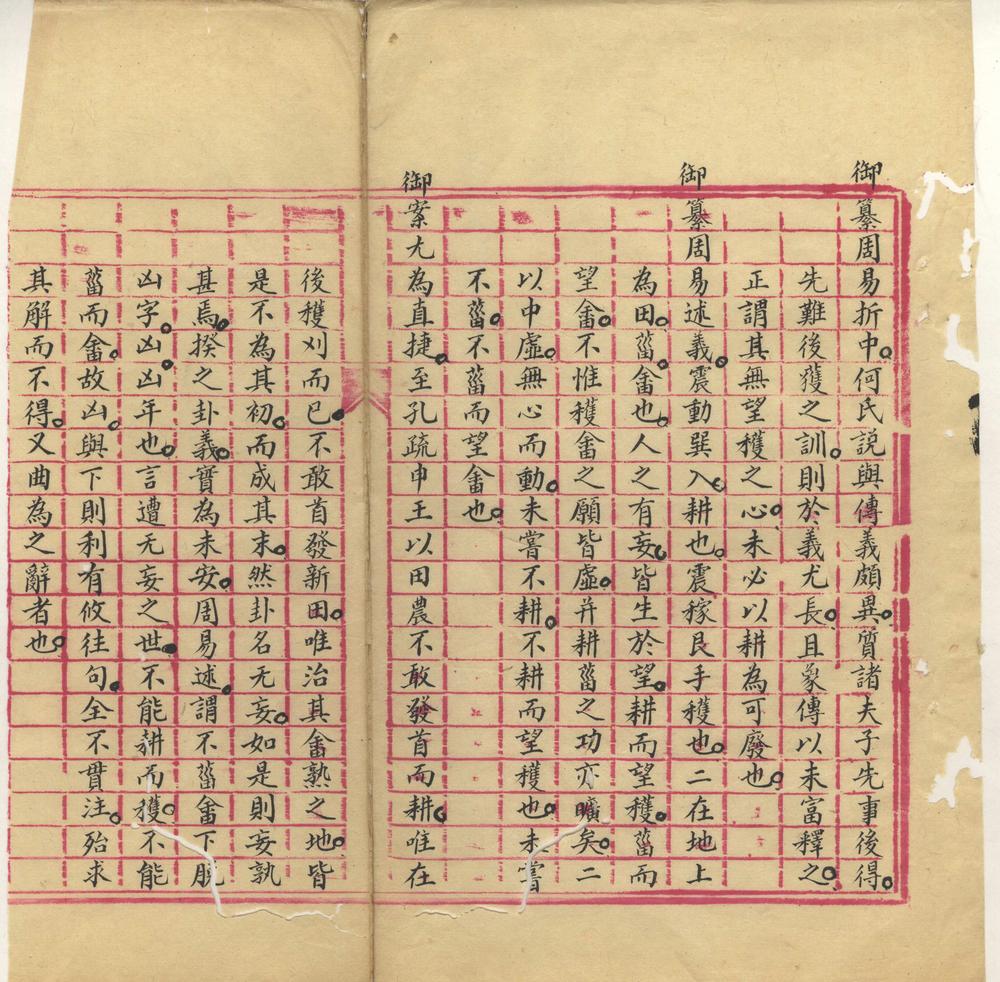 御纂周易折中何氏說與傳義頗異質諸夫子先事後得
先難後獲之訓則於義尤長且彖傳以未富釋之
正謂其無望穫之心未必以耕為可廢也
御纂周易述義震動巽入耕也震稼艮手穫也二在地上
為田菑畬也人之有妄皆生於望耕而望穫菑而
望畬不惟穫畬之願皆虛并耕菑之功亦曠矣二
以中虛無心而動未嘗不耕不耕而望穫也未嘗
不菑不菑而望畬也
御案尤為直捷至孔疏申王以田農不敢發首而耕唯在
後穫刈而已不敢首發新田唯治其畬熟之地皆
是不為其初而成其末然卦名无妄如是則妄孰
甚焉揆之卦義實為未安周易述謂不菑畬下脫
凶字凶凶年也言遭无妄之世不能耕而穫不能
菑而畬故凶與下則利有攸往句全不貫注殆求
其解而不得又曲為之辭者也